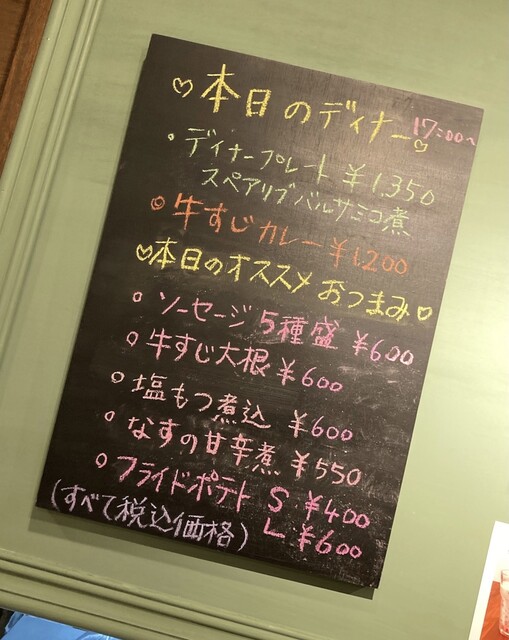 ♡本日のディナー♡ 17:00〜
・ディナープレート ¥1,350
スペアリブバルサミコ煮
◎牛すじカレー ¥1,200
♡本日のオススメ おつまみ♡
○ソーセージ5種盛 ¥600
○牛すじ大根 ¥600
○塩もつ煮込 ¥600
○なすの甘辛煮 ¥550
○フライドポテト S ¥400
L ¥600
(すべて税込価格)